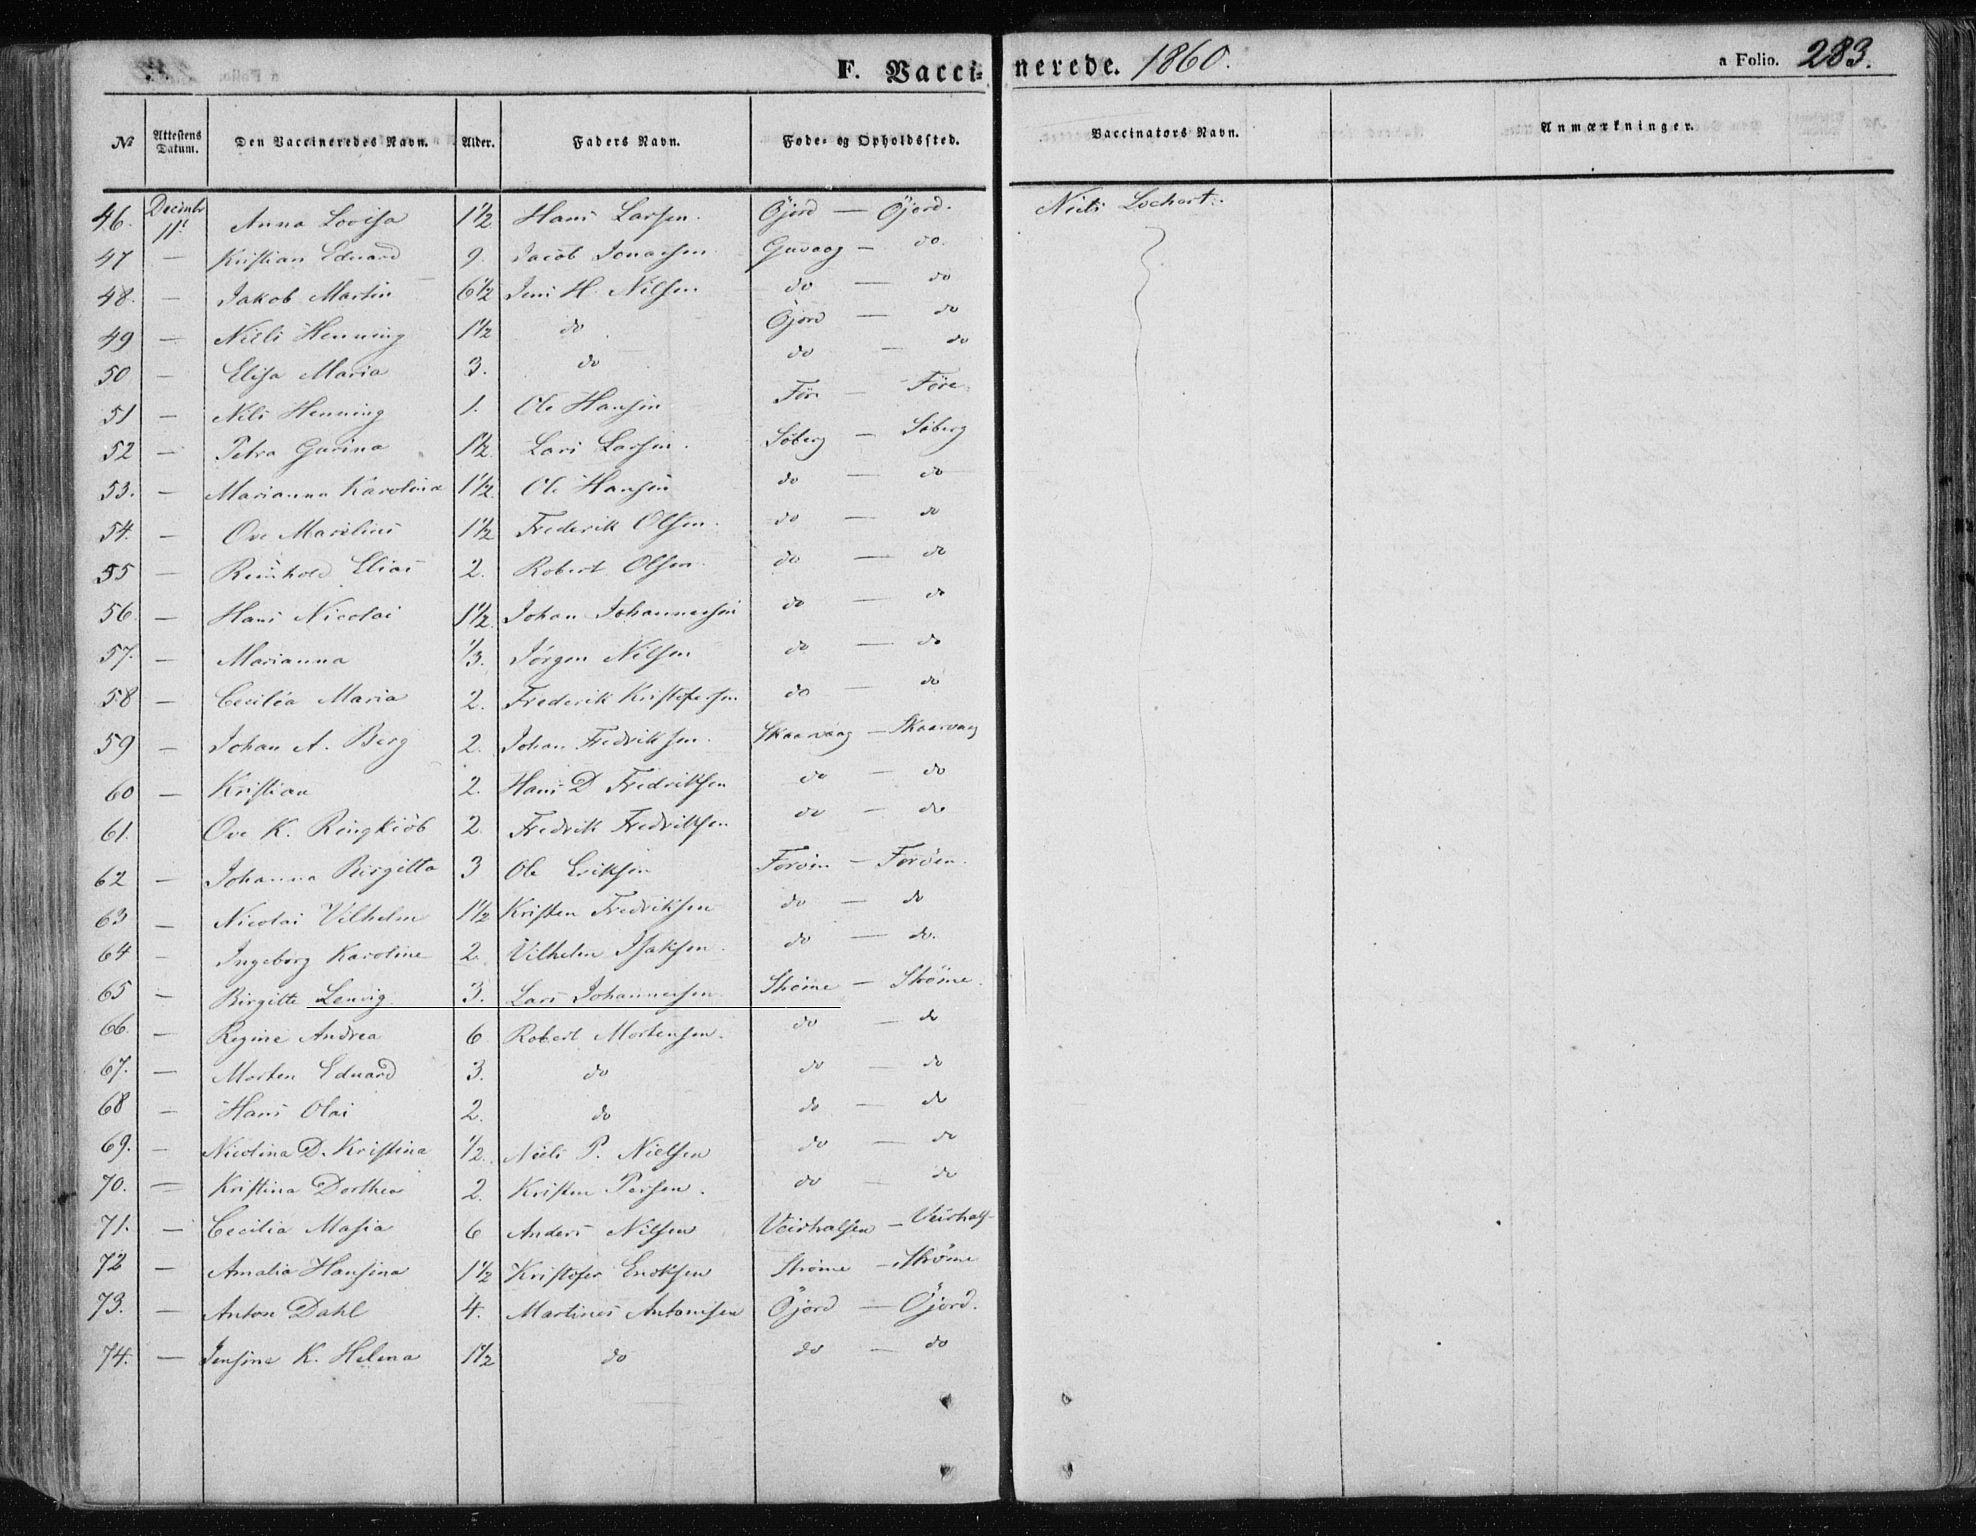 F. Vaccinerede. 1860. a Folio. 283.
№ Attestens Datum. Den Vaccineredes Navn. Alder. Faders Navn. Føde- og Opholdssted. Vaccinators Navn. Anmærkninger.
46. Decembr 11t Anna Lovisa 1 1/2 Hans Larsen. Öjord — Öjord. Niels Lochert.
47 — Kristian Eduard 9. Jacob Jonassen Guvaag — do.
48. — Jakob Martin 6 1/2 Jens H. Nilsen do — do
49 — Niels Henning 1 1/2 do Öjord — do
50 — Elisa Maria 3. do do — do
51 — Nils Henning 1. Ole Hansen Före — Före.
52 — Petra Gurina 1 1/2. Lars Larsen. Söberg — Söberg
53. — Marianna Karolina 1 1/2. Ole Hansen do — do
54. — Ove Marelius 1 1/2 Frederik Olsen. do — do
55 — Reinhold Elias 2. Robert Olsen. do — do
56 — Hans Nicolai 1 1/2. Johan Johannessen do — do
57. — Marianna 1/3. Jörgen Nilsen do — do
58 — Cecilia Maria 2. Frederik Kristofersen do — do
59 — Johan A. Berg 2. Johan Fredriksen. Skaarvaag — Skaarvaag
60 — Kristian 2. Hans D Fredriksen do — do
61. — Ove K. Ringkiöb 2. Fredrik Fredriksen do — do
62 — Johanna Birgitta 3 Ole Eriksen Foröen — Foröen.
63 — Nicolai Vilhelm 1 1/2 Kristen Fredriksen do — do
64 — Ingeborg Karoline 2. Vilhelm Isaksen. do — do.
65 — Birgitte Lenvig 3. Lars Johannessen Ströme — Ströme.
66. — Regine Andrea 6 Robert Mortensen. do — do
67. — Morten Eduard 3. do do — do
68 — Hans Olai 2. do do — do
69. — Nicolina D. Kristina 1/2. Niels P. Nielsen do — do
70. — Kristina Dorthea 2. Kristen Persen. do — do
71. — Cecilia Masia 6 Anders Nilsen Veidhalsen — Veidhals
72 — Amalia Hansina 1 1/2 Kristofer Enoksen Ströme — Ströme
73. — Anton Dahl 4. Martines Antonisen Öjord — Öjord.
74. — Jensine K. Helena 1 1/2 do do — do